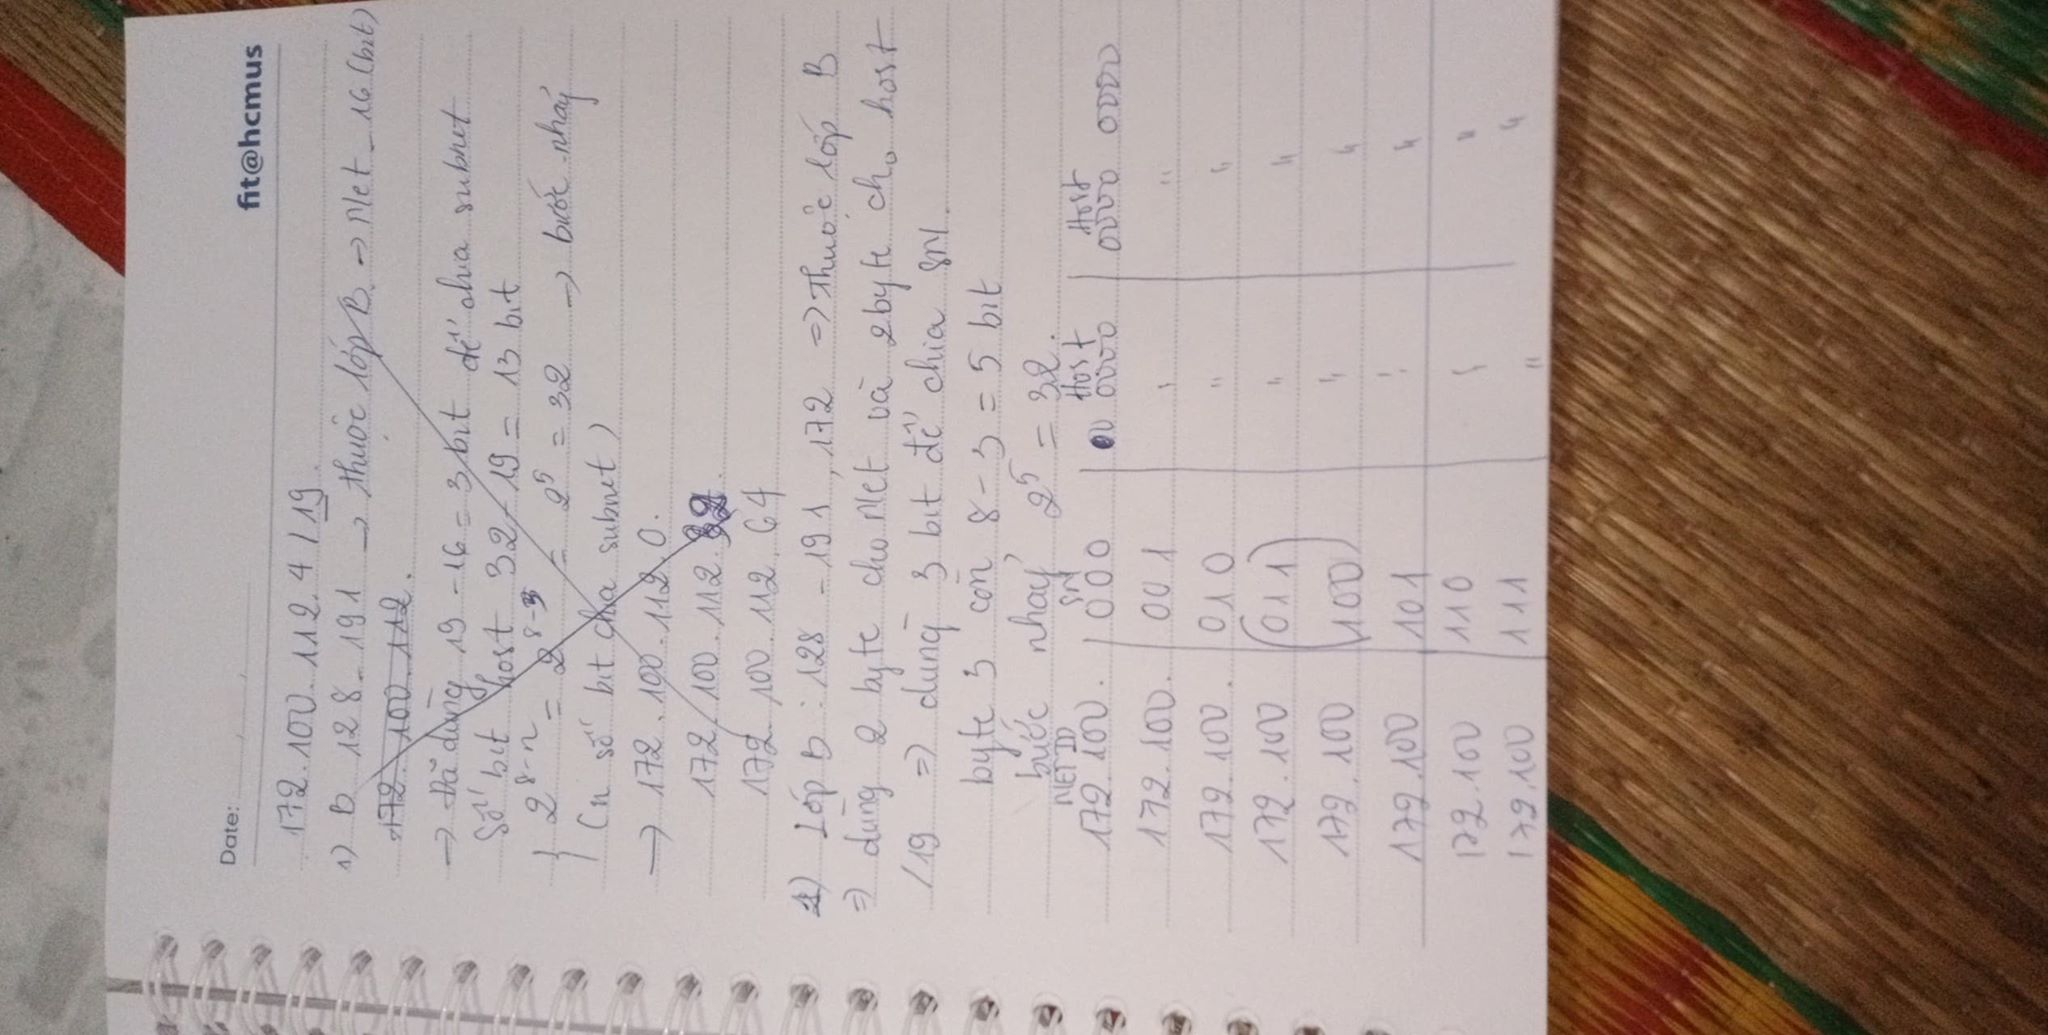 Date:
fit@hcmus
172.100.112.4 / 19.
1) B 128 - 191 → thuộc lớp B. → Net - 16 (bit)
172.100.112.
→ Đã dùng 19 - 16 = 3 bit để chia subnet
Số bit host 32 - 19 = 13 bit
2^8-n = 2^8-3 = 2^5 = 32 → bước nhảy
(n số bit chia subnet)
→ 172.100.112.0.
172.100.112.32.
172.100.112.64
1) Lớp B : 128 - 191, 172 => Thuộc lớp B
=> dùng 2 byte cho Net và 2 byte cho host
/19 => dùng 3 bit để chia SN.
byte 3 còn 8 - 3 = 5 bit
bước nhảy 2^5 = 32.
NET ID SN Host Host
172.100. 000 0 0000 0000 0000
172.100. 001 " "
172.100. 010 " "
172.100 (011 " "
172.100 100) " "
172.100 101 " "
172.100 110 " "
172.100 111 " "